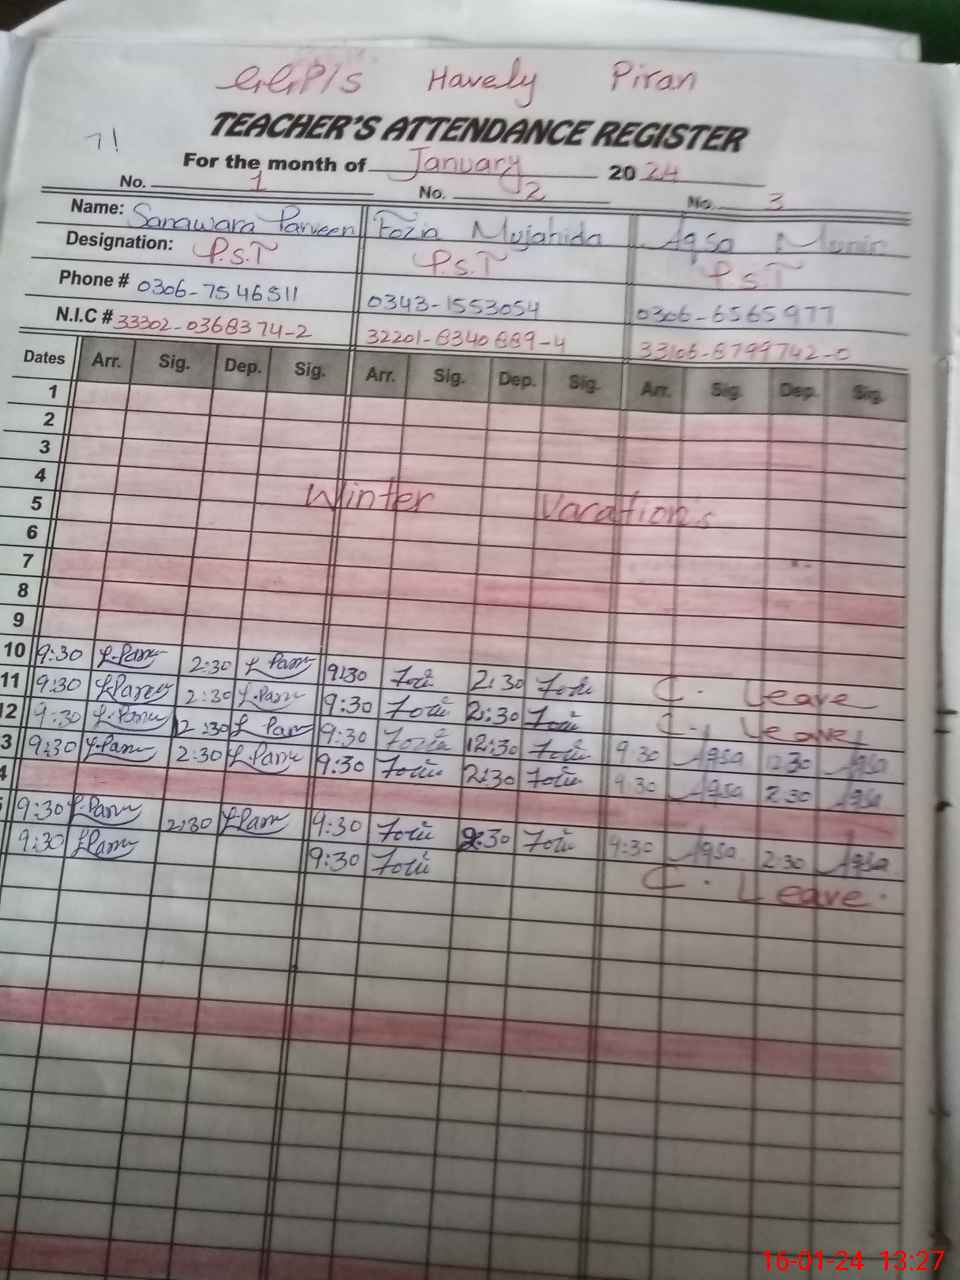 GGP/S Havely Piran
TEACHER'S ATTENDANCE REGISTER
71
For the month of January 2024
No. 1 No. 2 No. 3
Name: Sanawara Parveen Fozia Mujahida Aqsa Munir
Designation: P.S.T P.S.T P.S.T
Phone # 0306-7546511 0343-1553054 0306-6565977
N.I.C # 33302-0368374-2 32201-8340889-4 33106-8799742-0
Dates Arr. Sig. Dep. Sig. Arr. Sig. Dep. Sig. Arr. Sig. Dep. Sig.
1
2
3
4
5 Winter Vacations
6
7
8
9
10 9:30 2:30 9:30 2:30 C. Leave
11 9:30 2:30 9:30 2:30 C. Leave
12 9:30 12:30 9:30 12:30 9:30 Aqsa 12:30 Aqsa
3 9:30 2:30 9:30 2:30 9:30 Aqsa 2:30 Aqsa
4
5 9:30 2:30 9:30 2:30 9:30 Aqsa 2:30 Aqsa
9:30 9:30 C. Leave.
16-01-24 13:27